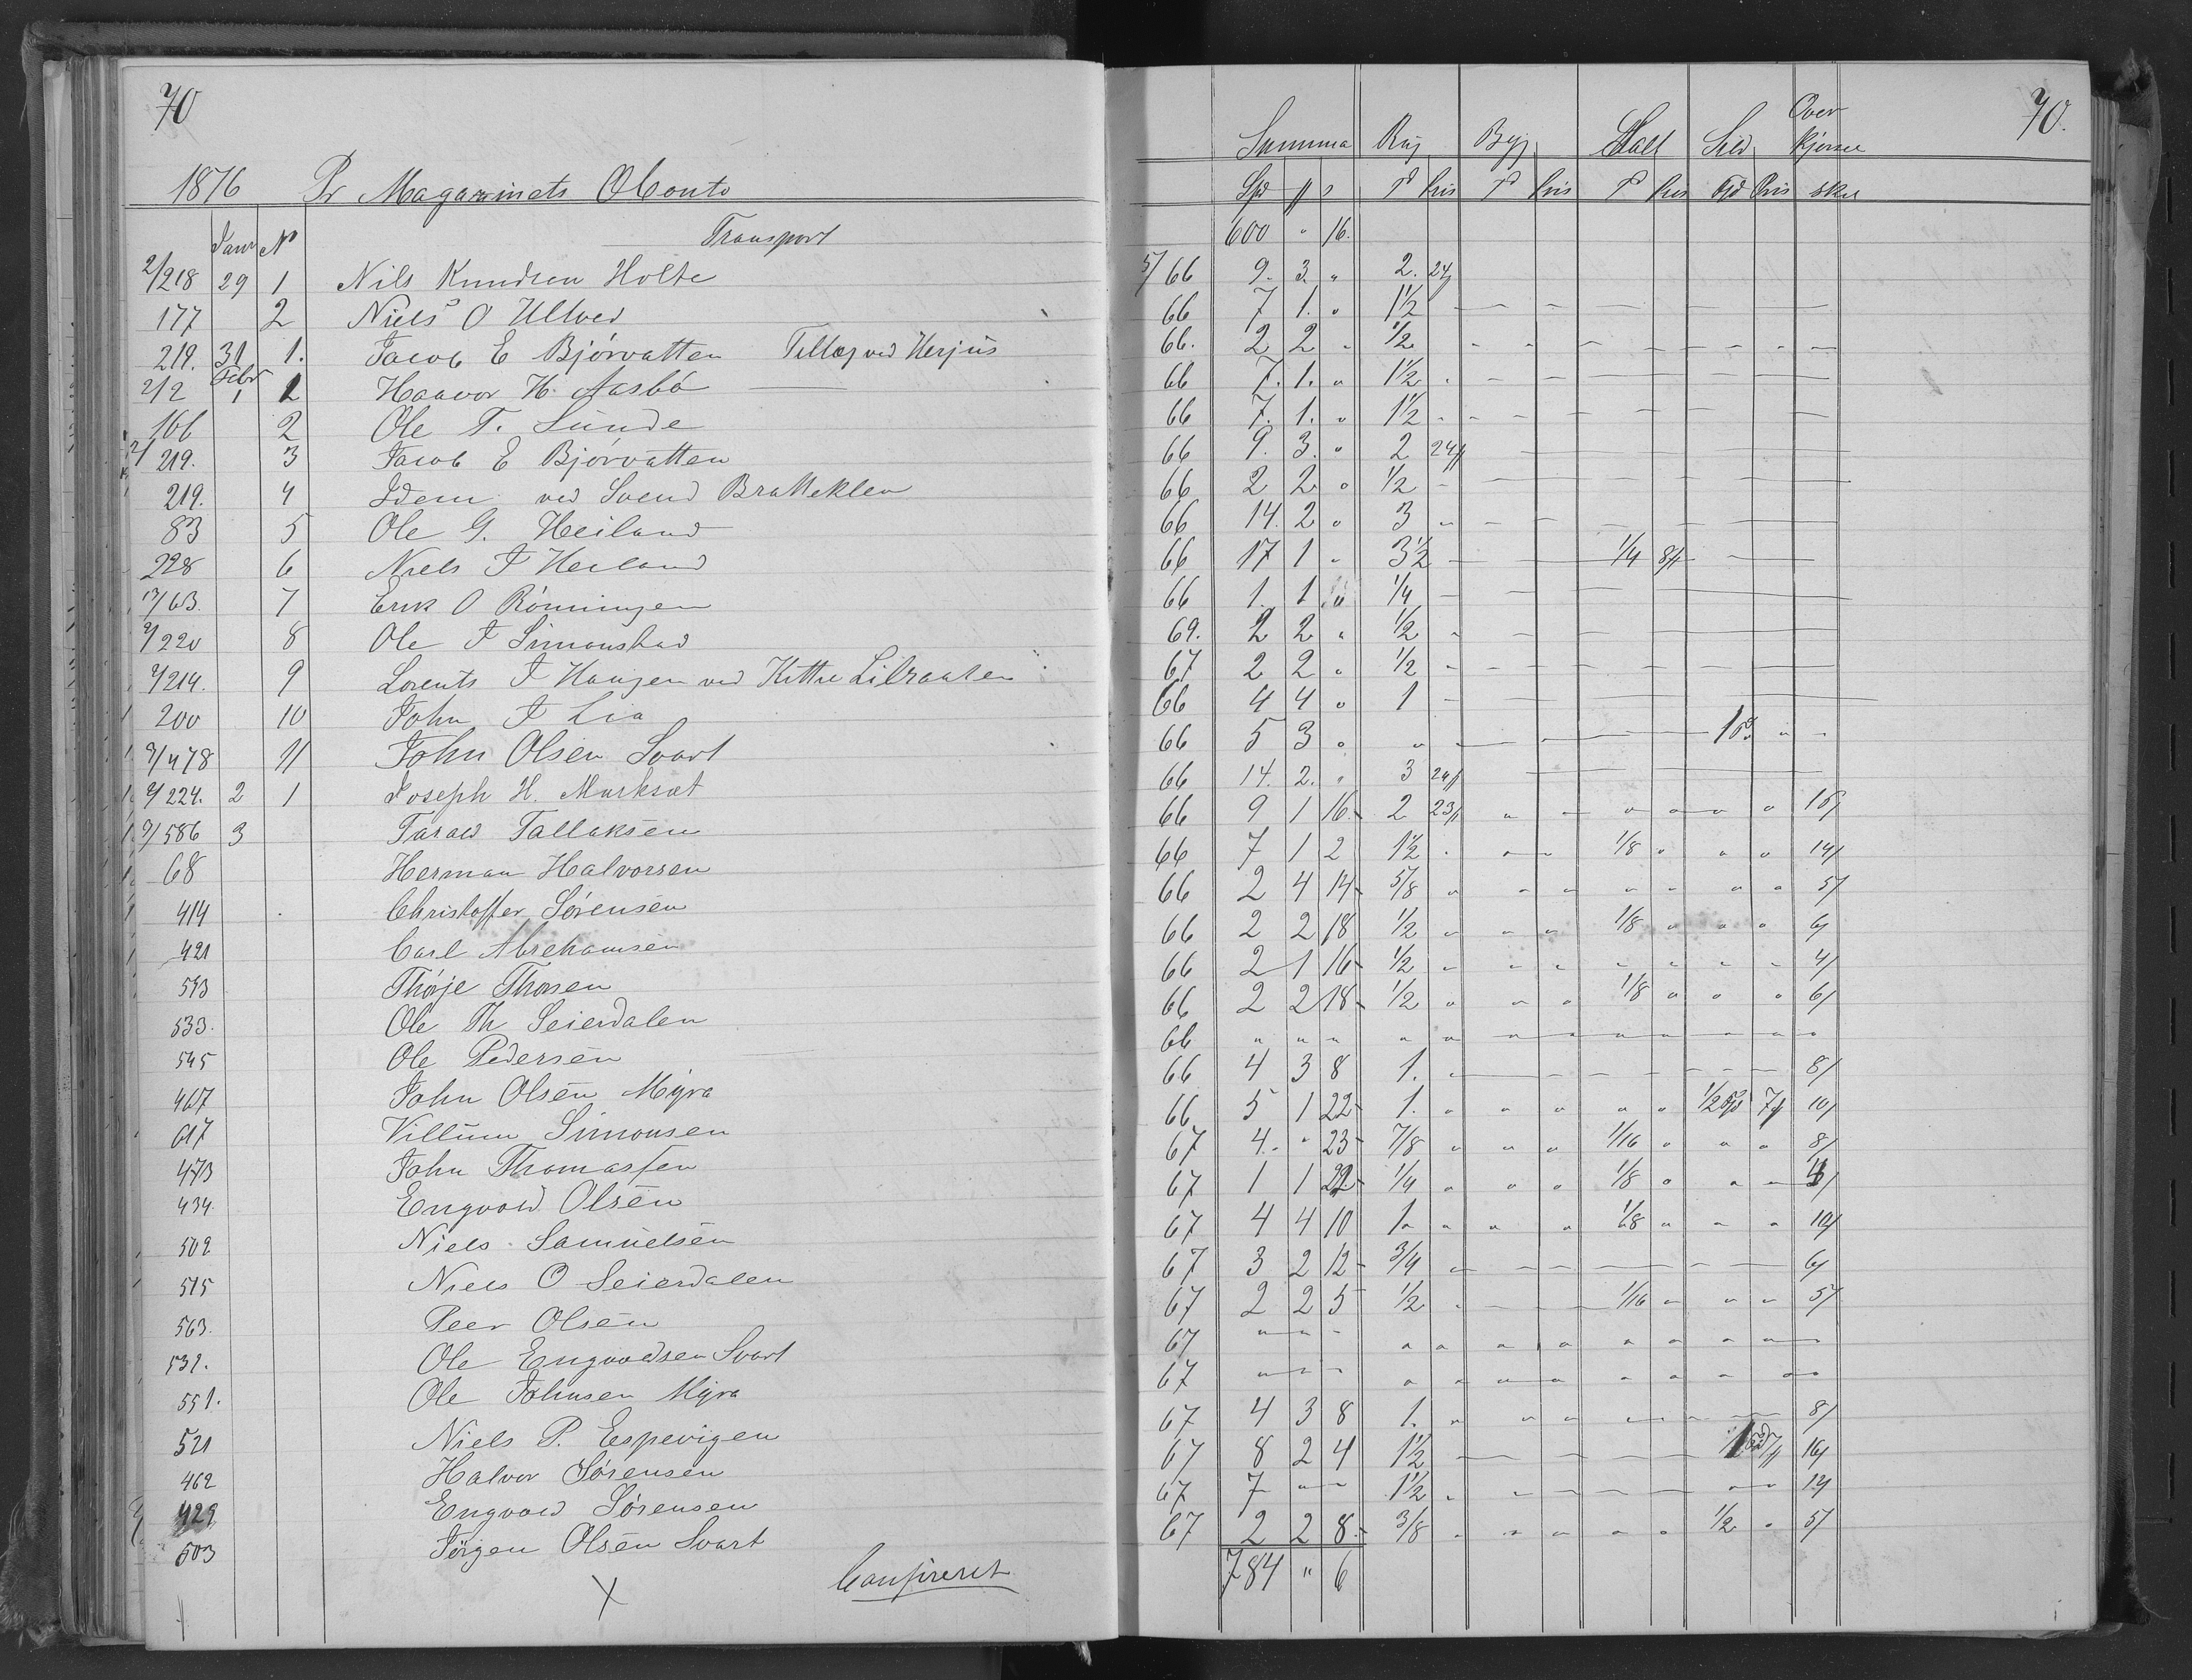 70
1876 Pr Magazinets Conto
Janr No Transport
2/218 29 1 Nils Knudsen Holte
177 2 Niels O Ulltved
219. 31 1. Jacob E Bjørvatten Tillæg ved Herjus
212 Febr 1 1 Haavor H. Aasbø
166 2 Ole T. Sunde
2/219. 3 Jacob E Bjørvatten
219. 4 Idem ved Svend Bratteklev
83 5 Ole G. Heiland
228 6 Niels J Heiland
63. 7 Erik O Rönningen
2/220 8 Ole J Simonstad
2/214. 9 Lorents J Haugen ved Kittil Lilraaten
200 10 John J Lia
2/478 11 John Olsen Svart
2/224. 2 1 Joseph H. Marksæt
2/586 3 Tarald Tallaksen
68 Herman Halvorsen
414 Christoffer Sørensen
421 Carl Abrehamsen
593 Thorje Thorsen
533. Ole Th Seierdalen
545 Ole Pedersen
467 John Olsen Myra
617 Villum Simonsen
473 John Thomassen
434. Engvold Olsen
502 Niels Samuelsen
515 Niels O Seierdalen
563. Peer Olsen
532. Ole Engvoldsen Svart
551. Ole Johnsen Myra
521 Niels P. Espevigen
462 Halvor Sørensen
429 Engvold Sørensen
503 Jörgen Olsen Svart
X Confereret
70.
Summa Rug Byg Salt Sild Over kjørsel
Spd # s T pris T pris T pris Bd Pris sku
600 " 16.
5/66 9. 3. " 2. 24#
66 7 1. " 1 1/2
66. 2 2 " 1/2
66 7. 1. " 1 1/2
66 7. 1. " 1 1/2
66 9. 3. " 2 24#
66 2 2 " 1/2
66 14. 2 " 3
66 17 1 " 3 1/2 1/4 8#
66 1. 1 " 1/4
69. 2 2 " 1/2
67 2 2 " 1/2
66 4 4 " 1
66 5 3 " "
66 14. 2. " 3 24#
66 9 1 16 2 23# 16/
66 7 1 2 1 1/2 1/8 14/
66 2 4 14 5/8 5/
66 2 2 18 1/2 1/8 6/
66 2 1 16 1/2 4/
66 2 2 18 1/2 1/8 6/
66 " " " "
66 4 3 8 1. 8/
66 5 1 22 1. 1/2 Bd 7# 10/
67 4. " 23 7/8 1/16 8/
67 1 1 22 1/4 1/8
67 4 4 10 1 1/8 10/
67 3 2 12 3/4 6/
67 2 2 5 1/2 1/16 5/
67 " " "
67 " " "
67 4 3 8 1. 8/
67 8 2 4 1 1/2 16/
67 7 " " 1 1/2 12/
67 2 2 8 3/8 1/2 5/
784 " 6